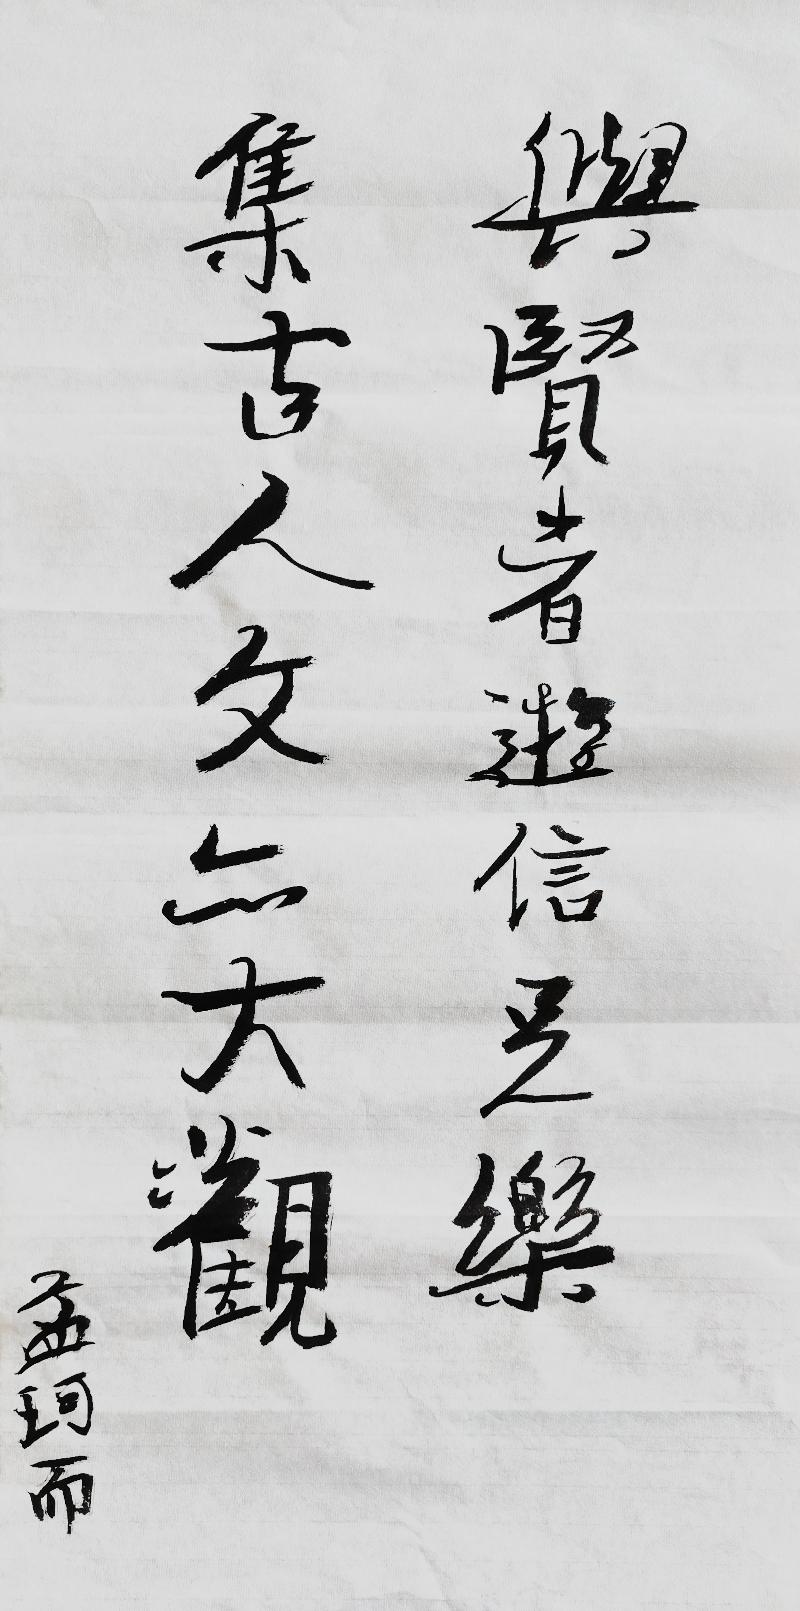 與賢者遊信足樂
集古人文亦大觀
孟珂而